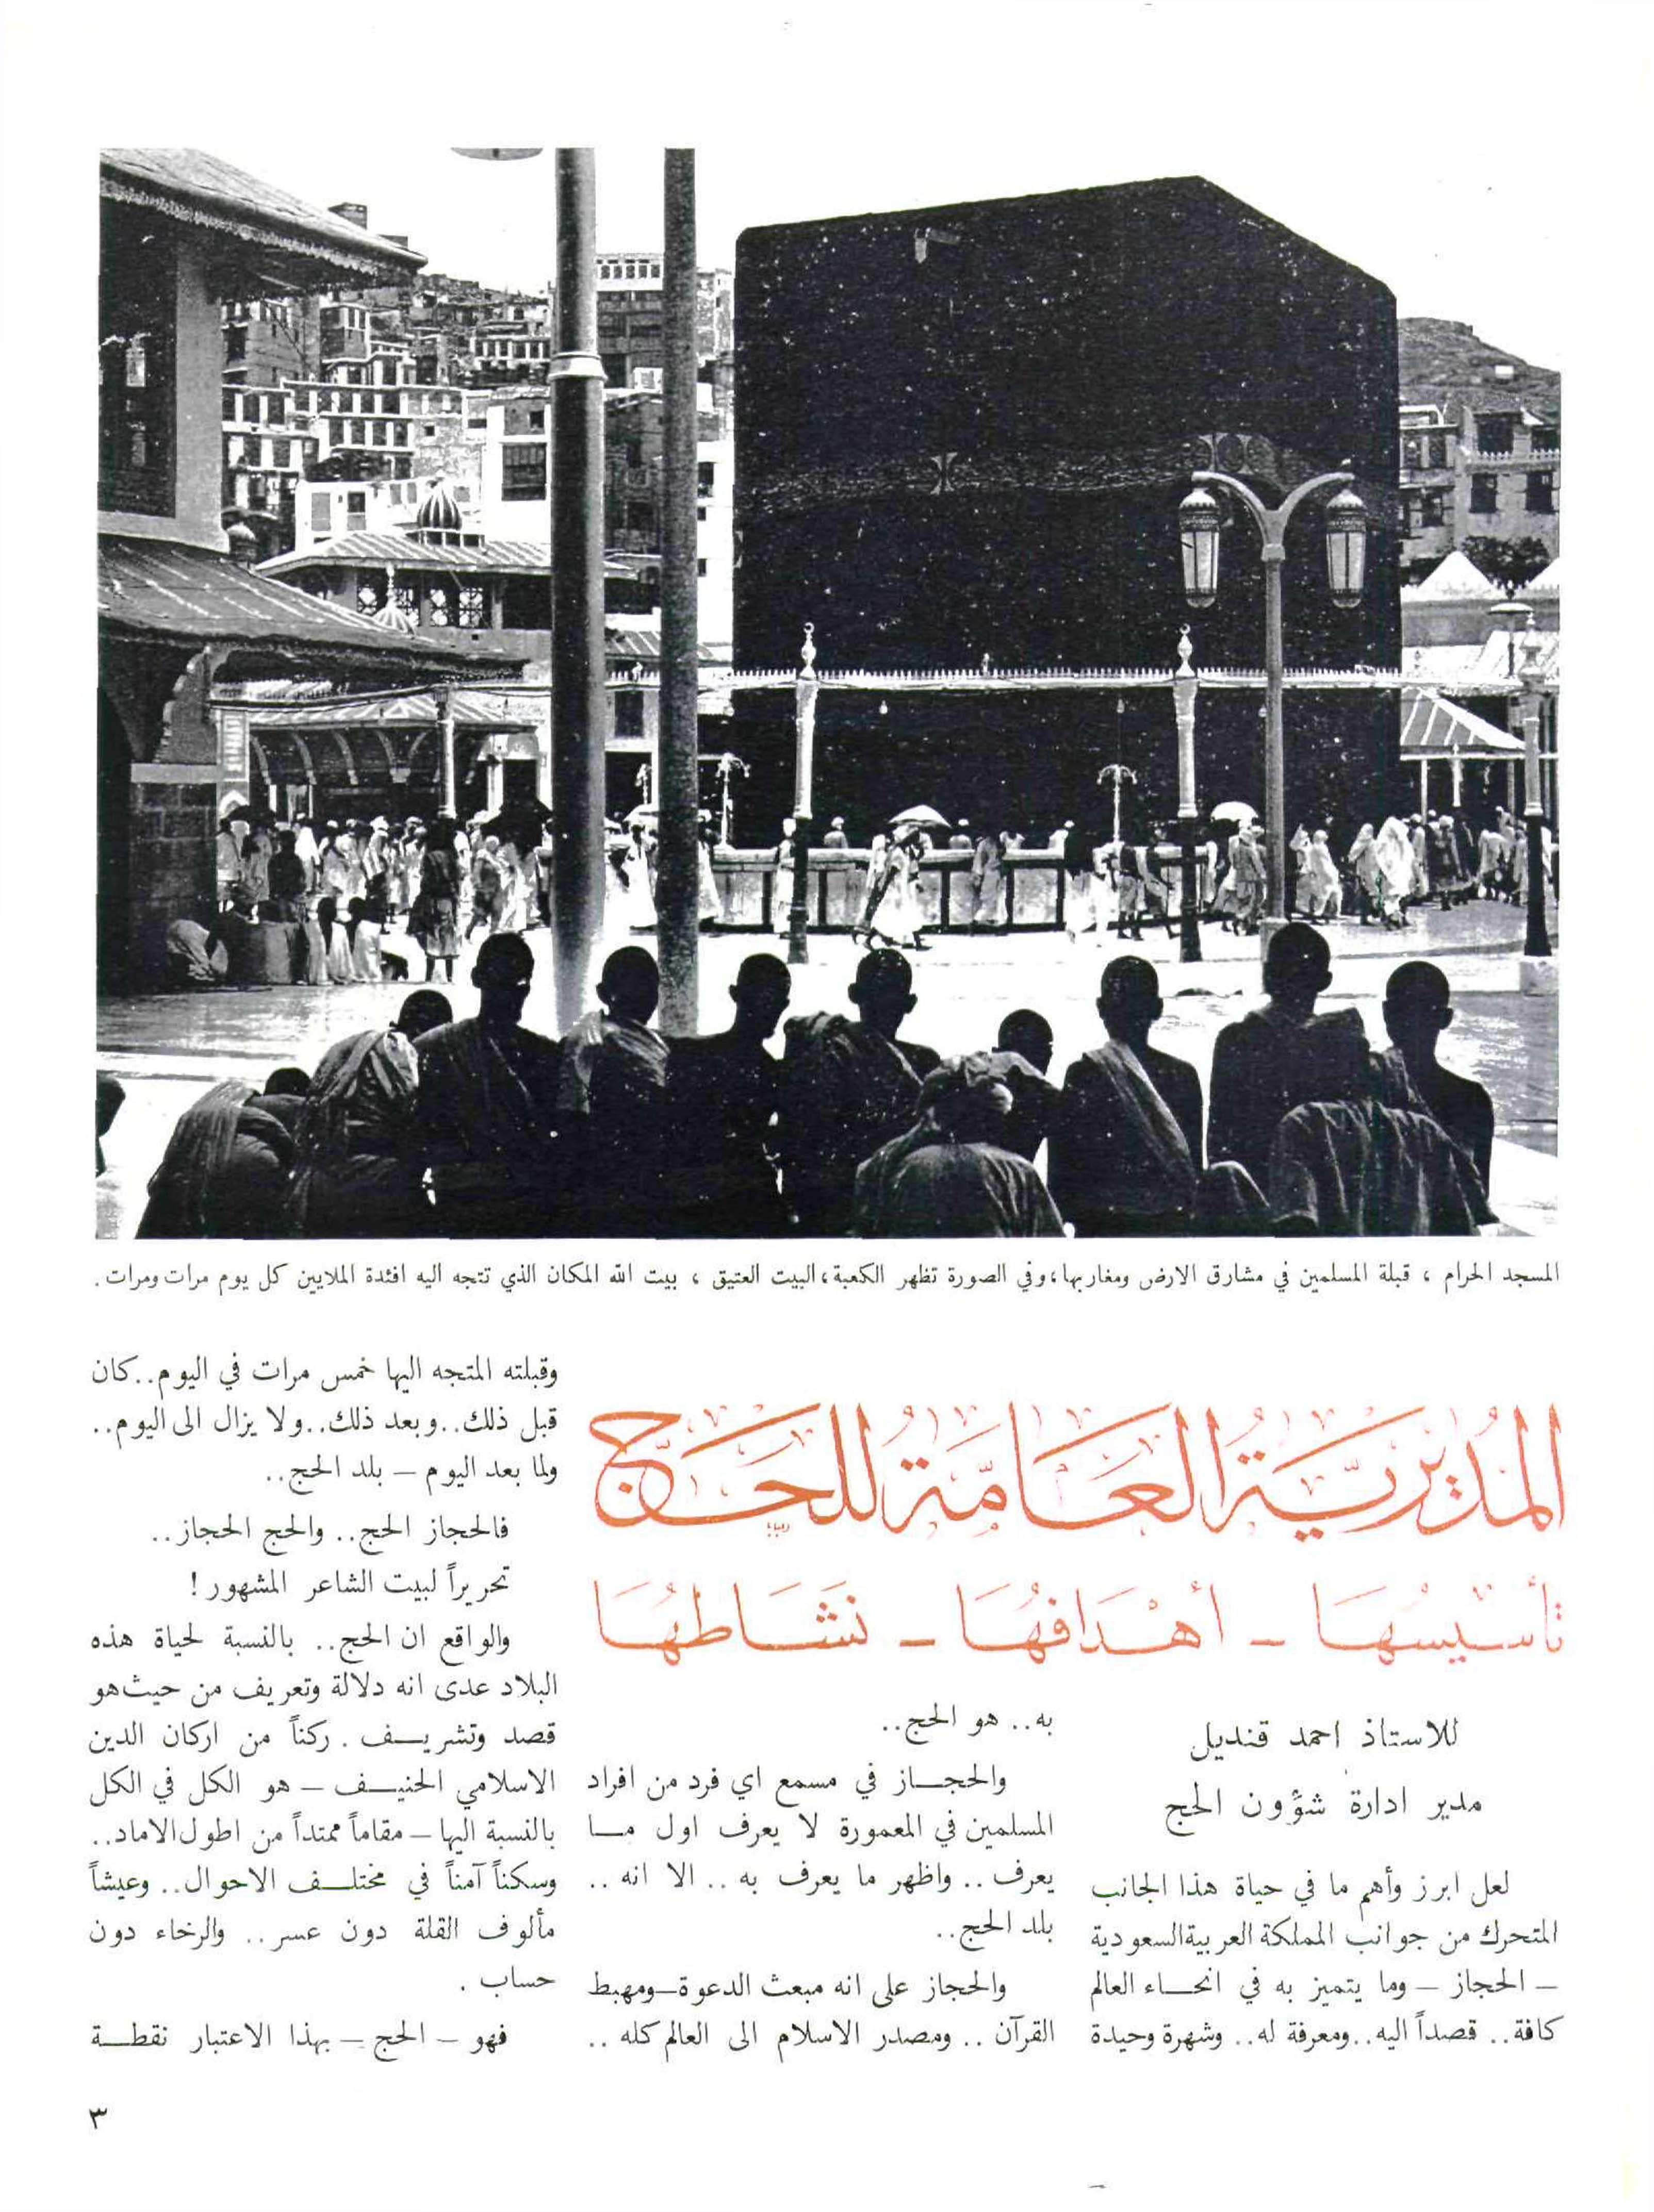 المسجد الحرام ، قبلة المسلمين في مشارق الارض ومغاربها ، وفي الصورة تظهر الكعبة ، البيت العتيق ، بيت الله المكان الذي تتجه اليه افئدة الملايين كل يوم مرات ومرات .
المُديريَّة العَامَّة للحَجّ
تأسيسُها – أهْدَافهُا – نشَاطهُا
للاستاذ احمد قنديل
مدير ادارة شؤون الحج
لعل ابرز وأهم ما في حياة هذا الجانب
المتحرك من جوانب المملكة العربية السعودية
– الحجاز – وما يتميز به في انحاء العالم
كافة .. قصداً اليه .. ومعرفة له .. وشهرة وحيدة
به .. هو الحج ..
والحجاز في مسمع اي فرد من افراد
المسلمين في المعمورة لا يعرف اول ما
يعرف .. واظهر ما يعرف به .. الا انه ..
بلد الحج ..
والحجاز على انه مبعث الدعوة – ومهبط
القرآن .. ومصدر الاسلام الى العالم كله ..
وقبلته المتجه اليها خمس مرات في اليوم .. كان
قبل ذلك .. وبعد ذلك .. ولا يزال الى اليوم ..
ولما بعد اليوم – بلد الحج ..
فالحجاز الحج .. والحج الحجاز ..
تحريراً لبيت الشاعر المشهور !
والواقع ان الحج .. بالنسبة لحياة هذه
البلاد عدى انه دلالة وتعريف من حيث هو
قصد وتشريف . ركناً من اركان الدين
الاسلامي الحنيف – هو الكل في الكل
بالنسبة اليها – مقاماً ممتداً من اطول الاماد ..
وسكناً آمناً في مختلف الاحوال .. وعيشاً
مألوف القلة دون عسر .. والرخاء دون
حساب .
فهو – الحج – بهذا الاعتبار نقطة
٣